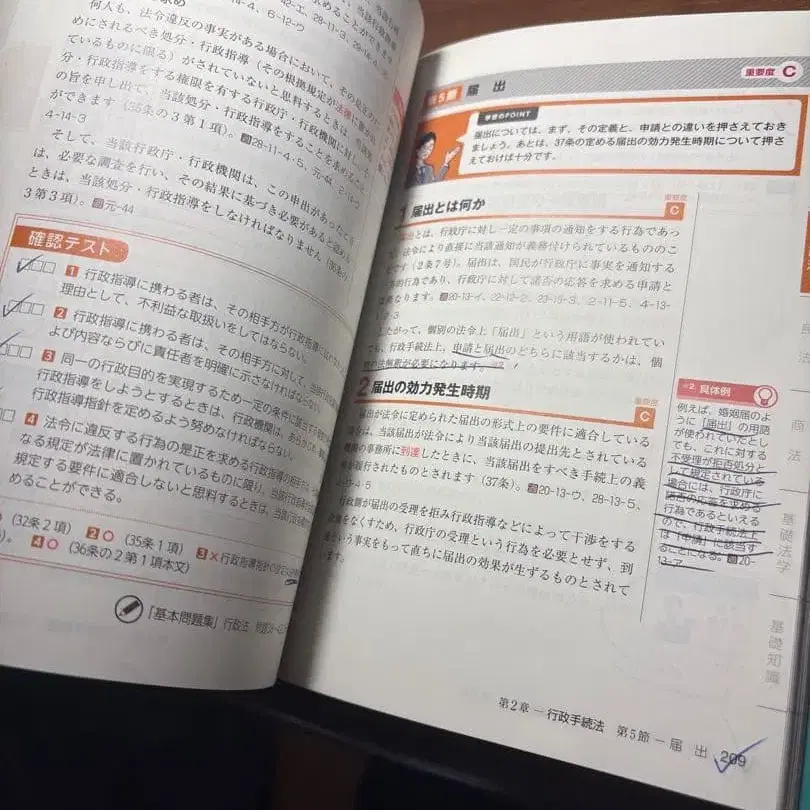 何人も、法令違反の事実がある場合において、その是正のた
めにされるべき処分・行政指導(その根拠規定が法律に置かれ
ているものに限る)がされていないと思料するときは、当該処
分・行政指導をする権限を有する行政庁・行政機関に対し、そ
の旨を申し出て、当該処分・行政指導をすることを求めること
ができます(36条の3第1項)。
28-11-4・5、元-44、2-14-ウ
4-14-3
そして、当該行政庁・行政機関は、この申出があったとき
は、必要な調査を行い、その結果に基づき必要があると認める
ときは、当該処分・行政指導をしなければなりません(36条の
3第3項)。元-44
確認テスト
1 行政指導に携わる者は、その相手方が行政指導に
理由として、不利益な取扱いをしてはならない。
2 行政指導に携わる者は、その相手方に対して、当該行政
よび内容ならびに責任者を明確に示さなければならない。
3 同一の行政目的を実現するため一定の条件に該当する
行政指導をしようとするときは、行政機関は、あらかじめ、
行政指導指針を定めるよう努めなければならない。
4 法令に違反する行為の是正を求める行政指導の相手方は、
なる規定が法律に置かれているものに限り)、当該行政指導
規定する要件に適合しないと思料するときは、当該行政
めることができる。
(32条2項) 2○(35条1項) 3×行政指導指針の
4○(36条の2第1項本文)
「基本問題集」行政法
重要度 C
第5節 届 出
学習のPOINT
届出については、まず、その定義と、申請との違いを押さえておき
ましょう。あとは、37条の定める届出の効力発生時期について押さ
えておけば十分です。
1 届出とは何か
重要度
C
届出とは、行政庁に対し一定の事項の通知をする行為であっ
て、法令により直接に当該通知が義務付けられているもののこ
とです(2条7号)。届出は、国民が行政庁に事実を通知する
行為であり、行政庁に対して諾否の応答を求める申請と
異なります。20-13-イ、22-12-2、23-13-3、2-11-5、4-13-
したがって、個別の法令上「届出」という用語が使われてい
ても、行政手続法上、申請と届出のどちらに該当するかは、個
別の法解釈が必要になります。※2
2 届出の効力発生時期
重要度
C
届出が法令に定められた届出の形式上の要件に適合している
場合は、当該届出が法令により当該届出の提出先とされている
機関の事務所に到達したときに、当該届出をすべき手続上の義
務が履行されたものとされます(37条)。20-13-ウ、28-13-5、
行政側が届出の受理を拒み行政指導などによって干渉をする
余地をなくすため、行政庁の受理という行為を必要とせず、到
達という事実をもって直ちに届出の効果が生ずるものとされて
います。
※2 具体例
例えば、婚姻届のよ
うに「届出」の用語
が使われていたとし
ても、これに対する
不受理が拒否処分と
して規定されている
場合には、行政庁に
諾否の応答を求める
行為であるといえる
ので、行政手続法上
は「申請」に該当す
ることになる。20-
13-ア
商法
基礎法学
基礎知識
第2章 ― 行政手続法 第5節 ― 届 出 209